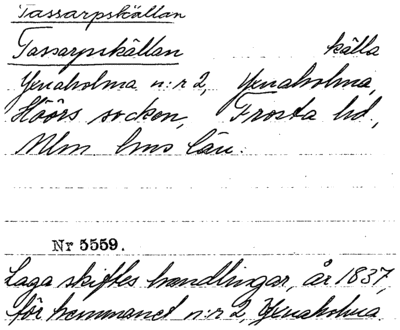 Tassarpskällan
Tassarpskällan källa
Yenaholma n:r 2, Yenaholma,
Höörs socken, Frosta hd.,
Mlm hus län.
Nr 5559.
Laga skiftes handlingar, år 1837,
för hemmanet n:r 2, Yenaholma